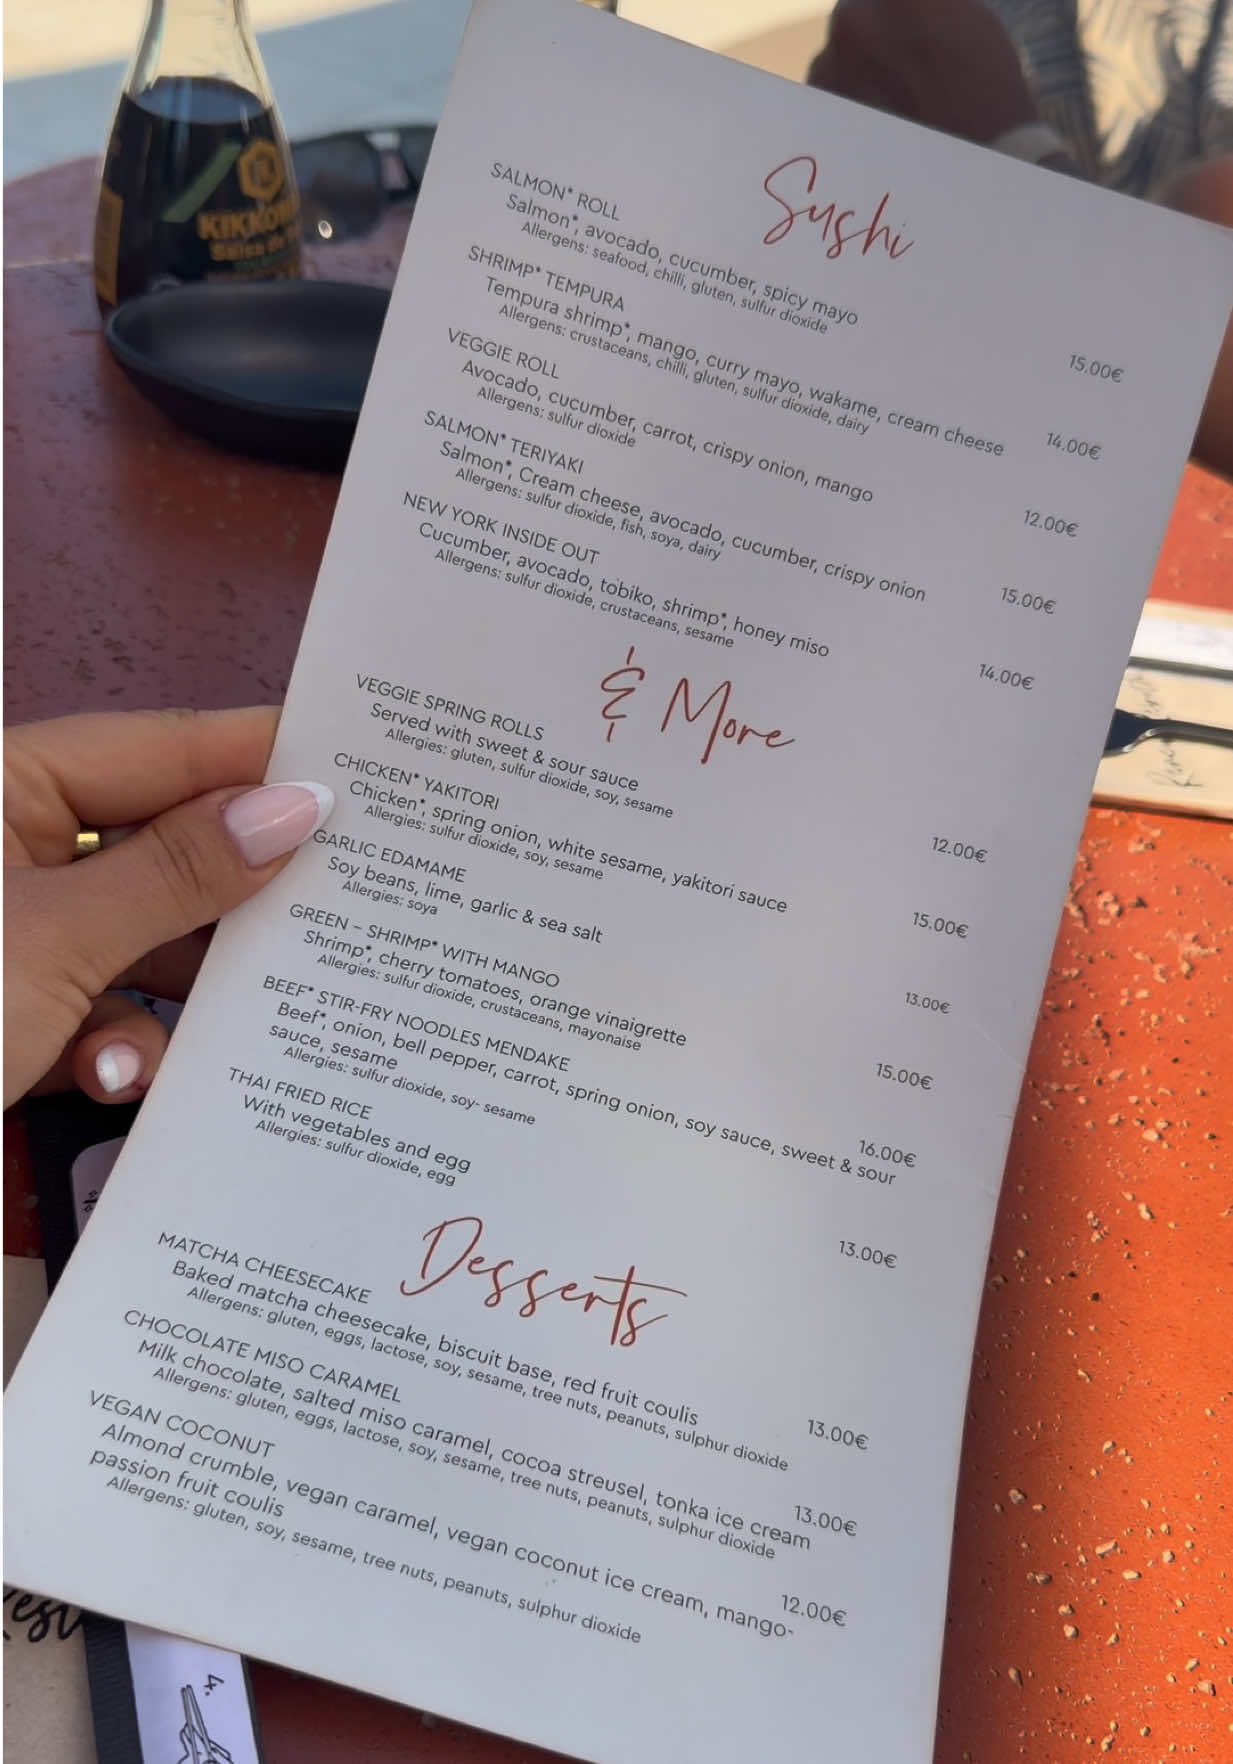 KIKKOMAN
Salsa de
Sushi
SALMON* ROLL
Salmon*, avocado, cucumber, spicy mayo
Allergens: seafood, chilli, gluten, sulfur dioxide
15.00€
SHRIMP* TEMPURA
Tempura shrimp*, mango, curry mayo, wakame, cream cheese
Allergens: crustaceans, chilli, gluten, sulfur dioxide, dairy
14.00€
VEGGIE ROLL
Avocado, cucumber, carrot, crispy onion, mango
Allergens: sulfur dioxide
12.00€
SALMON* TERIYAKI
Salmon*, Cream cheese, avocado, cucumber, crispy onion
Allergens: sulfur dioxide, fish, soya, dairy
15.00€
NEW YORK INSIDE OUT
Cucumber, avocado, tobiko, shrimp*, honey miso
Allergens: sulfur dioxide, crustaceans, sesame
14.00€
& More
VEGGIE SPRING ROLLS
Served with sweet & sour sauce
Allergies: gluten, sulfur dioxide, soy, sesame
12.00€
CHICKEN* YAKITORI
Chicken*, spring onion, white sesame, yakitori sauce
Allergies: sulfur dioxide, soy, sesame
15.00€
GARLIC EDAMAME
Soy beans, lime, garlic & sea salt
Allergies: soya
13.00€
GREEN – SHRIMP* WITH MANGO
Shrimp*, cherry tomatoes, orange vinaigrette
Allergies: sulfur dioxide, crustaceans, mayonaise
15.00€
BEEF* STIR-FRY NOODLES MENDAKE
Beef*, onion, bell pepper, carrot, spring onion, soy sauce, sweet & sour
sauce, sesame
Allergies: sulfur dioxide, soy- sesame
16.00€
THAI FRIED RICE
With vegetables and egg
Allergies: sulfur dioxide, egg
13.00€
Desserts
MATCHA CHEESECAKE
Baked matcha cheesecake, biscuit base, red fruit coulis
Allergens: gluten, eggs, lactose, soy, sesame, tree nuts, peanuts, sulphur dioxide
13.00€
CHOCOLATE MISO CARAMEL
Milk chocolate, salted miso caramel, cocoa streusel, tonka ice cream
Allergens: gluten, eggs, lactose, soy, sesame, tree nuts, peanuts, sulphur dioxide
13.00€
VEGAN COCONUT
Almond crumble, vegan caramel, vegan coconut ice cream, mango-
passion fruit coulis
Allergens: gluten, soy, sesame, tree nuts, peanuts, sulphur dioxide
12.00€
4.